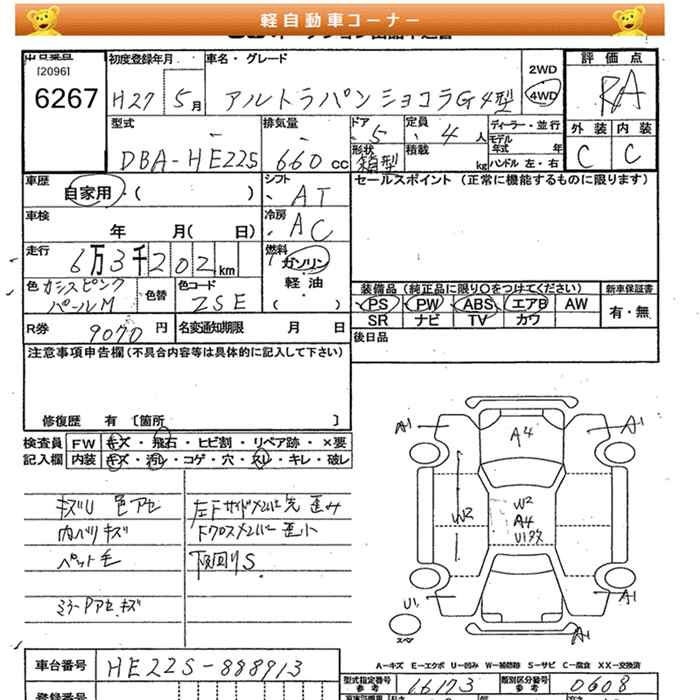 軽自動車コーナー
[2096]
6267
初度登録年月
H27 5月
車名・グレード
アルトラパンショコラG4型
2WD
4WD
評価点
RA
外装 内装
C C
型式
DBA-HE22S
排気量
660cc
ドア
5
形状
箱型
定員
4人
積載
kg
ディーラー・並行
モデル年式 年
ハンドル 左・右
車歴
自家用・( )
シフト
AT
セールスポイント (正常に機能するものに限ります)
車検
年 月( 日)
冷房
AC
走行
6万3千202km
燃料
ガソリン
軽・油
( )
色 カシスピンクパールM
色替
色コード
ZSE
装備品 (純正品に限り○をつけてください)
PS PW ABS エアB AW
SR ナビ TV カワ
新車保証書
有・無
R券
9070円
名変通知期限 月 日
後日品
注意事項申告欄(不具合内容等は具体的に記入して下さい)
修復歴 有 〔箇所 〕
検査員記入欄
FW キズ・飛石・ヒビ割・リペア跡・×要
内装 キズ・汚レ・コゲ・穴・スレ・キレ・破レ
キズU 色アセ
内ハリキズ
ペット毛
ミラーPアセキズ
左Fサイドメンバー先 歪み
Fクロスメンバー歪小
下回りS
A1
A1
A4
W2
W2
A4
U1アス
U1
A1
A1
スペア
A-キズ E-エクボ U-凹み W-補修跡 S-サビ C-腐食 XX-交換済
車台番号
HE22S-888913
登録番号
型式指定番号
参考
16173
類別区分番号
参考
0608